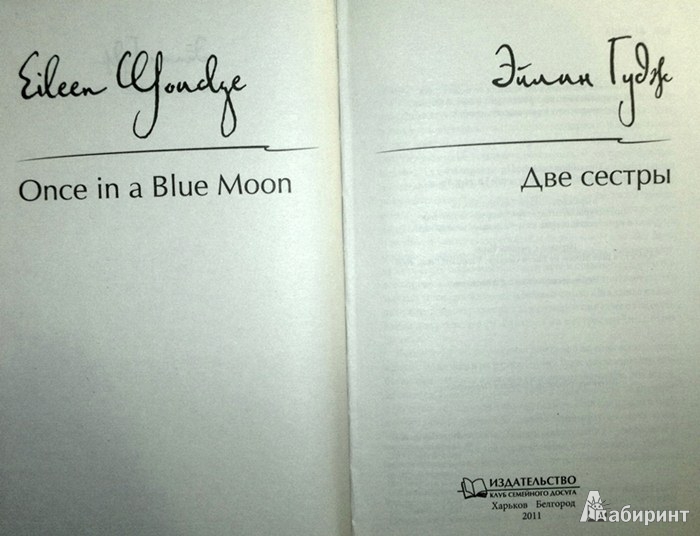 Eileen Goudge
Once in a Blue Moon
Эйлин Гудж
Две сестры
ИЗДАТЕЛЬСТВО
КЛУБ СЕМЕЙНОГО ДОСУГА
Харьков Белгород
2011
Лабиринт